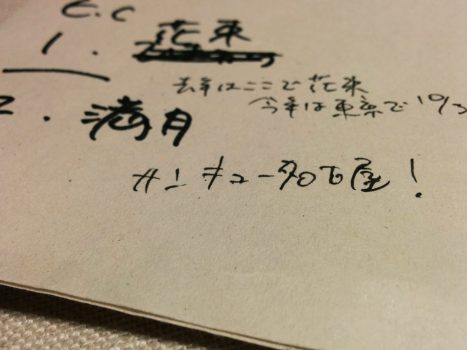 E.C
1. 花束
去年はここで花束
今年は東京で10/3
2. 満月
サンキュー名古屋!